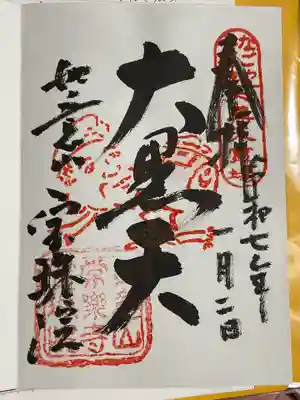 奉拝
令和七年
一月二日
大黒天
如意山 宝珠院
常樂寺